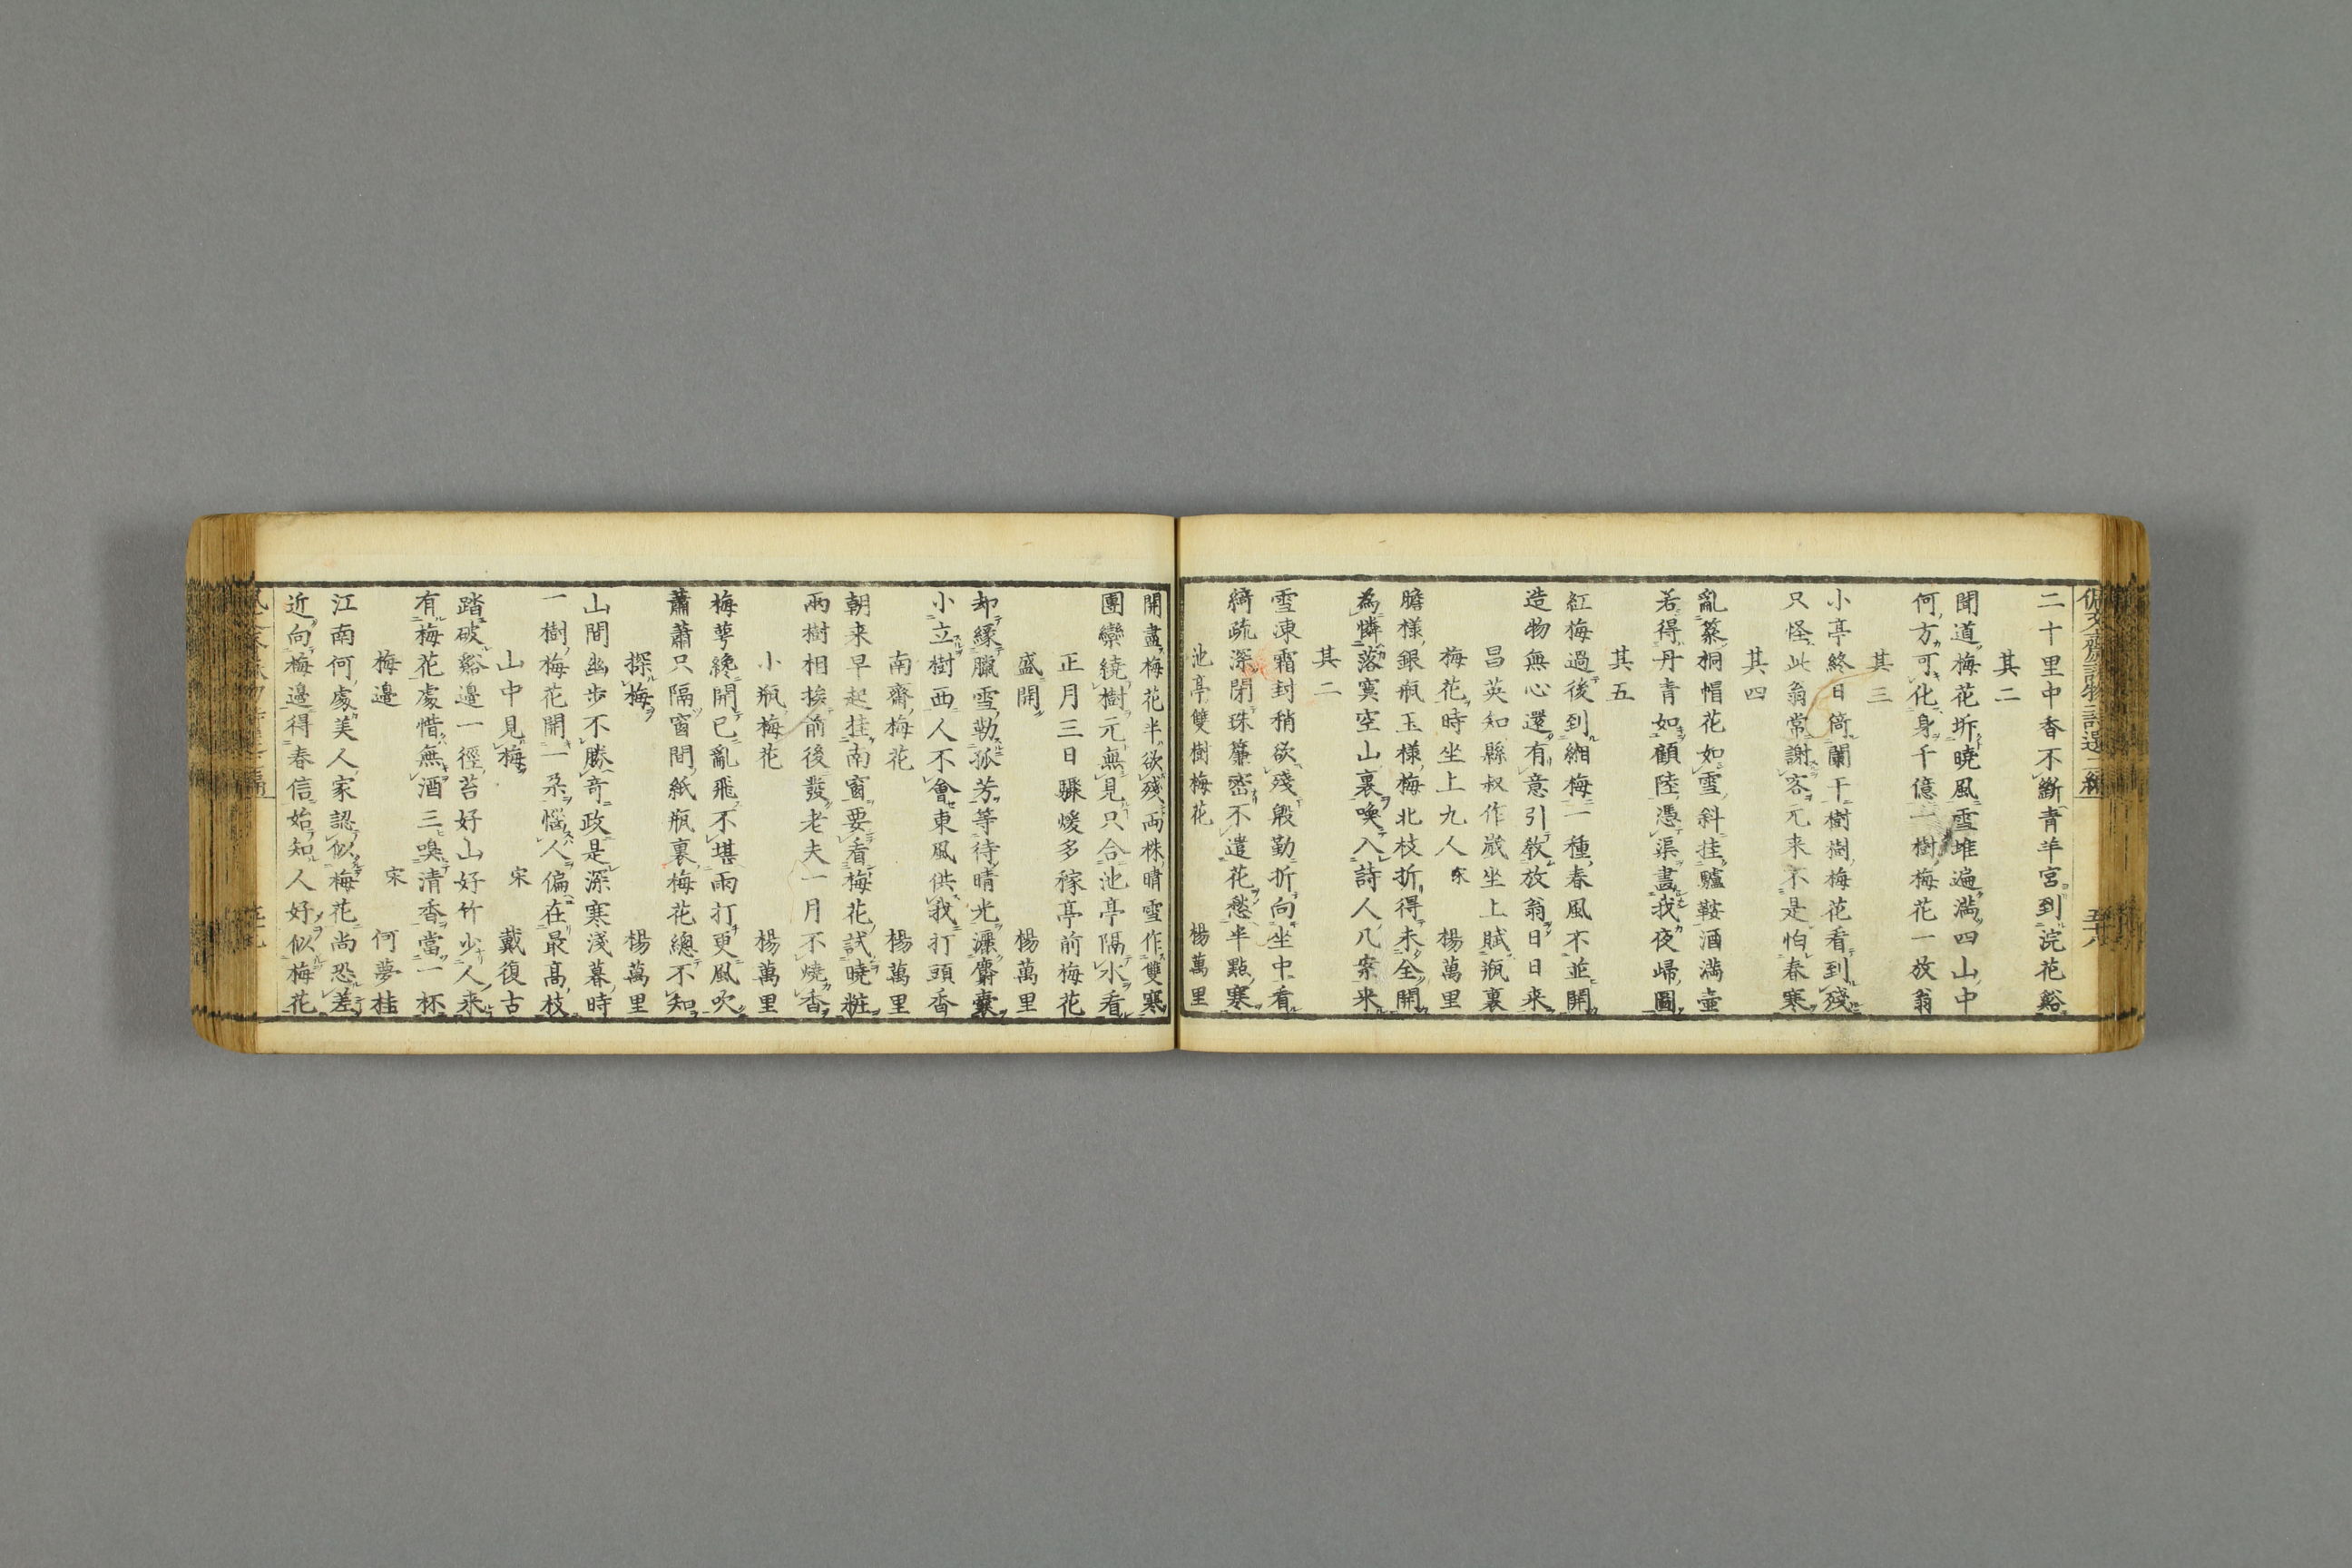 佩文齋詠物詩選二編
五十八
二十里中香不斷青羊宮到浣花谿
其二
聞道梅花坼曉風雪堆遍滿四山中
何方可化身千億一樹梅花一放翁
其三
小亭終日倚闌干樹樹梅花看到殘
只怪此翁常謝客元来不是怕春寒
其四
亂簪桐帽花如雪斜挂驢鞍酒滿壷
若得丹青如顧陸憑渠畫我夜歸圖
其五
紅梅過後到緗梅一種春風不並開
造物無心還有意引教放翁日日来
昌英知縣叔作歳坐上賦瓶裏
梅花時坐上九人 宋 楊萬里
膽樣銀瓶玉樣梅北枝折得未全開
為憐落寞空山裏喚入詩人几案来
其二
雪凍霜封稍欲殘殷勤折向坐中看
綺疏深閉珠簾密不遣花愁半點寒
池亭雙樹梅花 楊萬里
開盡梅花半欲殘兩株晴雪作雙寒
團欒繞樹元無見只合池亭隔水看
正月三日驟煖多稼亭前梅花
盛開 楊萬里
却緣臘雪勒孤芳等待晴光灑麝囊
小立樹西人不會東風供我打頭香
南齋梅花 楊萬里
朝来早起挂南窗要看梅花試曉粧
兩樹相挨前後發老夫一月不燒香
小瓶梅花 楊萬里
梅萼纔開已亂飛不堪雨打更風吹
蕭蕭只隔窗間紙瓶裏梅花總不知
探梅 楊萬里
山間幽步不勝奇政是深寒淺暮時
一樹梅花開一朶惱人偏在最高枝
山中見梅 宋 戴復古
踏破谿邊一徑苔好山好竹少人来
有梅花處惜無酒三嗅清香當一杯
梅邊 宋 何夢桂
江南何處美人家認似梅花尚恐差
近向梅邊得春信始知人好似梅花